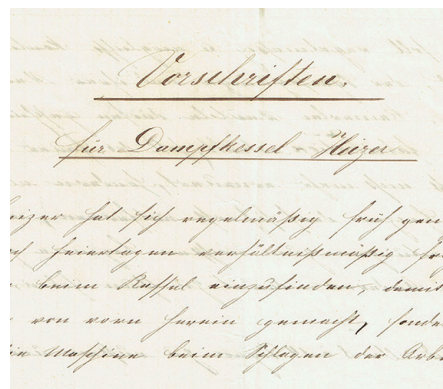 Vorschriften.
für Dampfkessel Heizer
eizer hat sich regelmäßig früh gen
ch feiertagen verhältnißmäßig fr
beim Kessel einzufinden, damit
von vorn herein gemacht, sonde
die Maschine beim Schlagen der Arbe